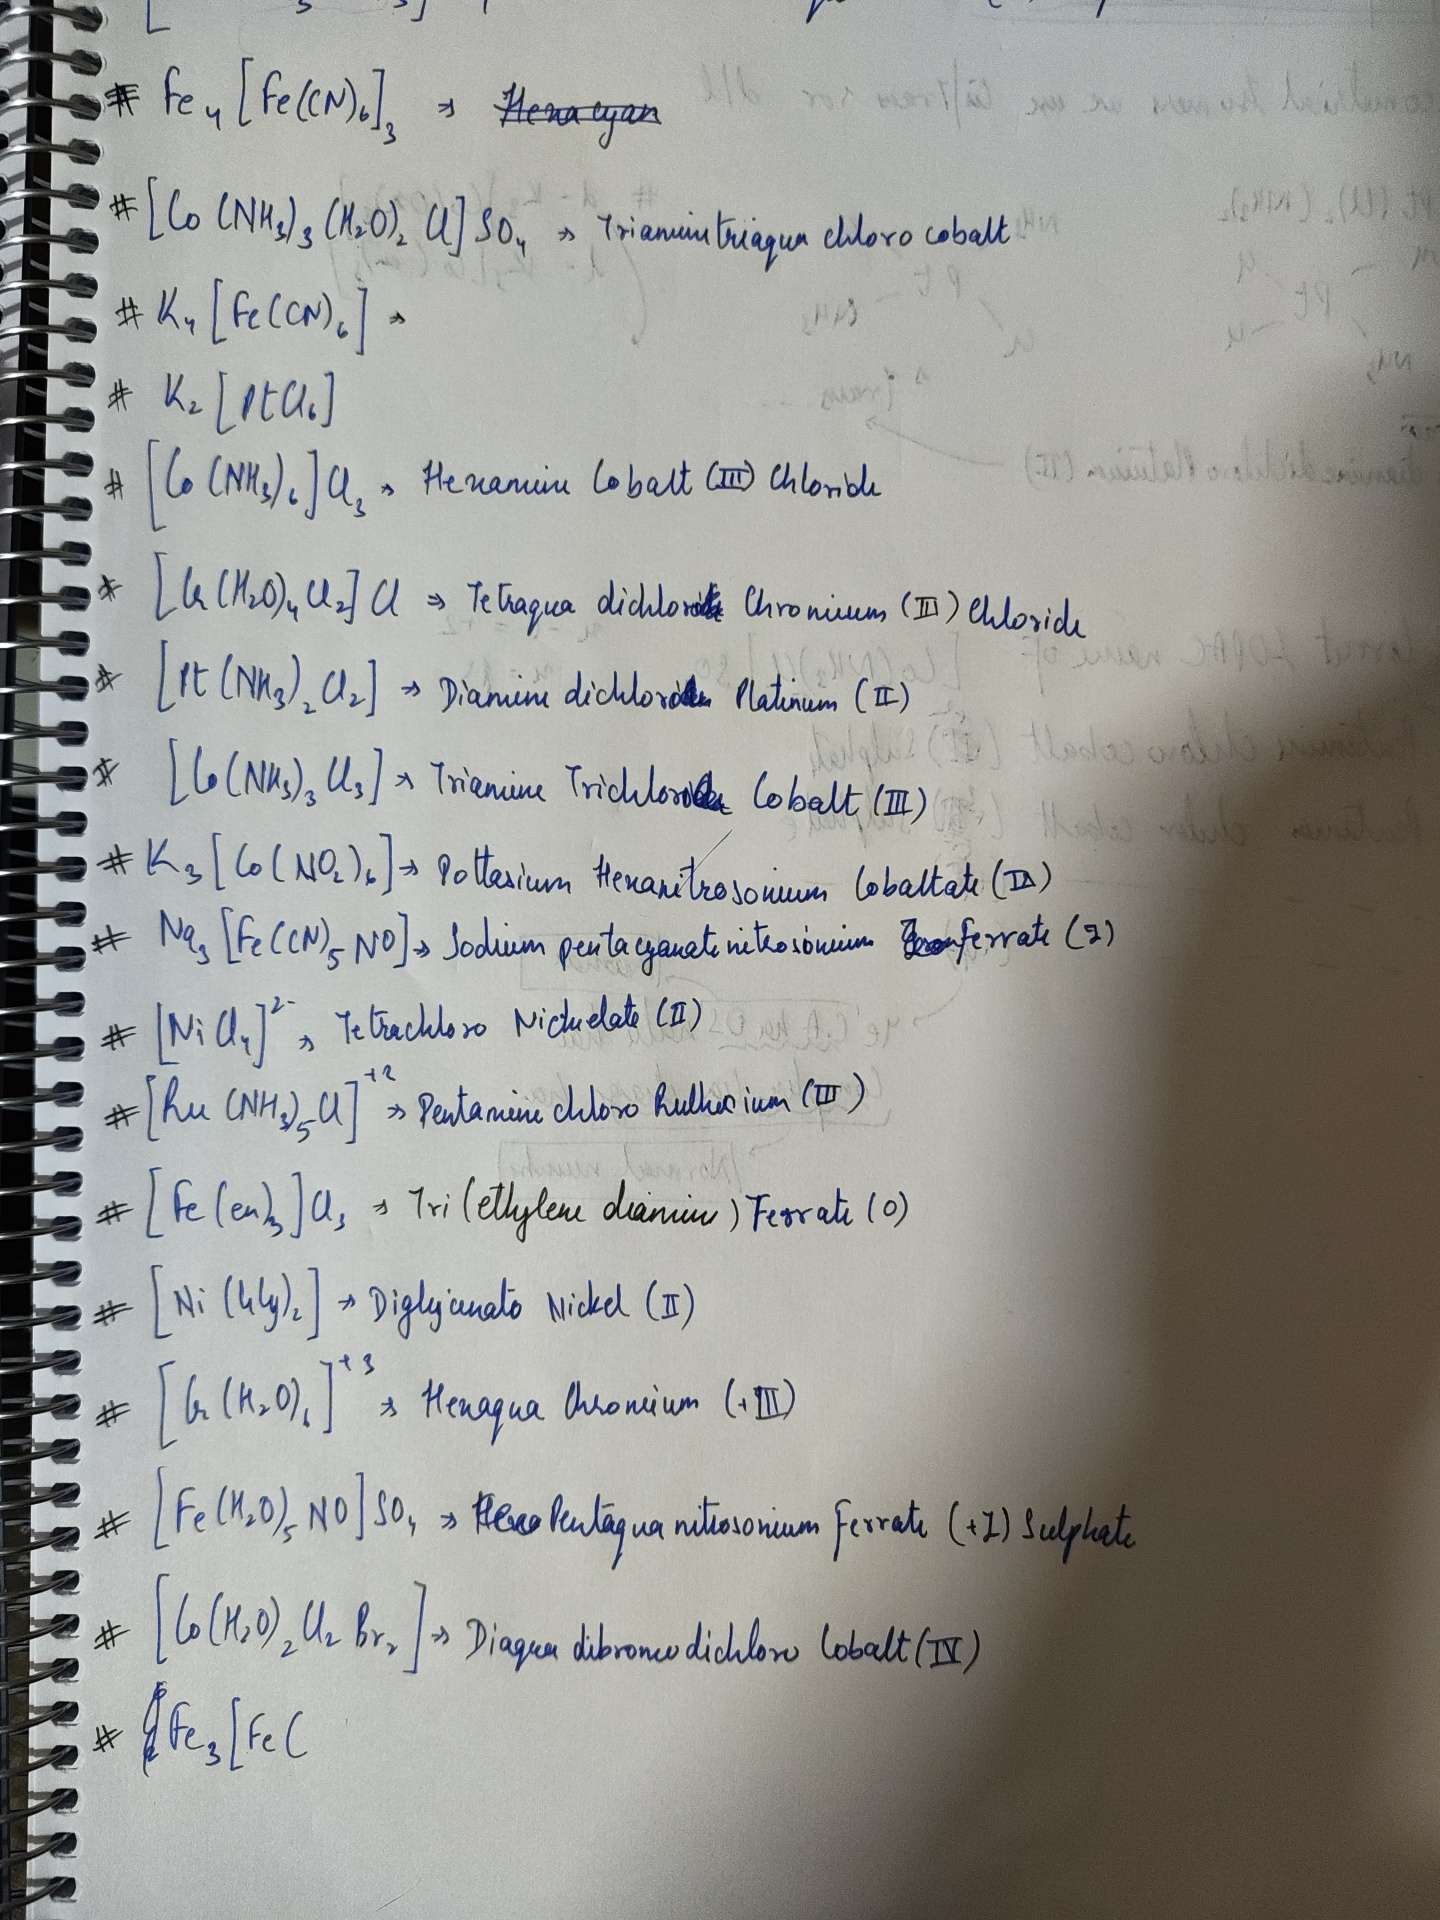 # Fe4[Fe(CN)6]3 → Hexacyan
# [Co(NH3)3(H2O)2Cl]SO4 → Triaminetriaqua chloro cobalt
# K4[Fe(CN)6] →
# K2[PtCl6]
# [Co(NH3)6]Cl3 → Hexamine Cobalt (III) Chloride
# [Cr(H2O)4Cl2]Cl → Tetraqua dichloro Chromium (III) Chloride
# [Pt(NH3)2Cl2] → Diamine dichloro Platinum (II)
# [Co(NH3)3Cl3] → Triamine Trichloro Cobalt (III)
# K3[Co(NO2)6] → Pottasium Hexanitrosonium Cobaltate
# Na3[Fe(CN)5NO] → Sodium pentacyanate nitrosonium ferrate (I)
# [NiCl4]2- → Tetrachloro Nickelate (II)
# [Ru(NH3)5Cl]+2 → Pentamine chloro Ruthenium (III)
# [Fe(en)3]Cl3 → Tri(ethylene diamine) Ferrate (0)
# [Ni(Gly)2] → Diglycinato Nickel (II)
# [Cr(H2O)6]+3 → Hexaqua Chromium (+III)
# [Fe(H2O)5NO]SO4 → Pentaqua nitrosonium Ferrate (+I) Sulphate
# [Co(H2O)2Cl2Br2] → Diaqua dibromo dichloro Cobalt (IV)
# Fe3[Fe(